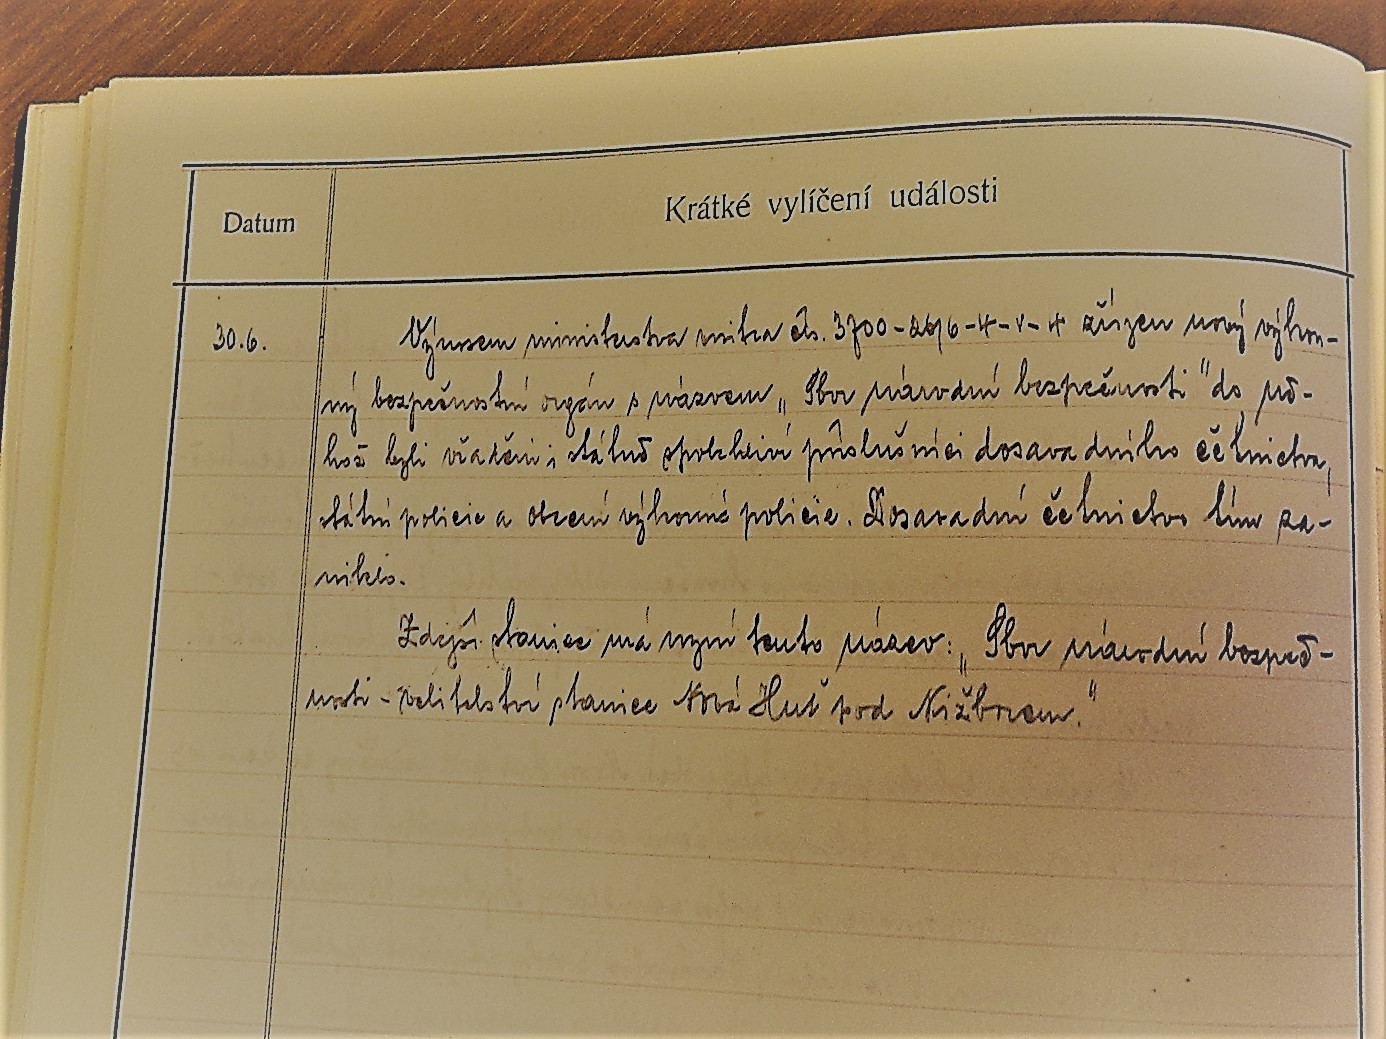 Datum
Krátké vylíčení události
30.6.
Výnosem ministerstva vnitra čís. zřízen nový výkon-
ný bezpečnostní orgán s názvem „Sbor národní bezpečnosti" do ně-
hož byli vřaděni i státně spolehliví příslušníci dosavadního četnictva,
státní policie a obecní výkonné policie. Dosavadní četnictvo tím za-
niklo.
Zdejší stanice má nyní tento název: „Sbor národní bezpeč-
nosti - velitelství stanice Nová Huť pod Nižborem."